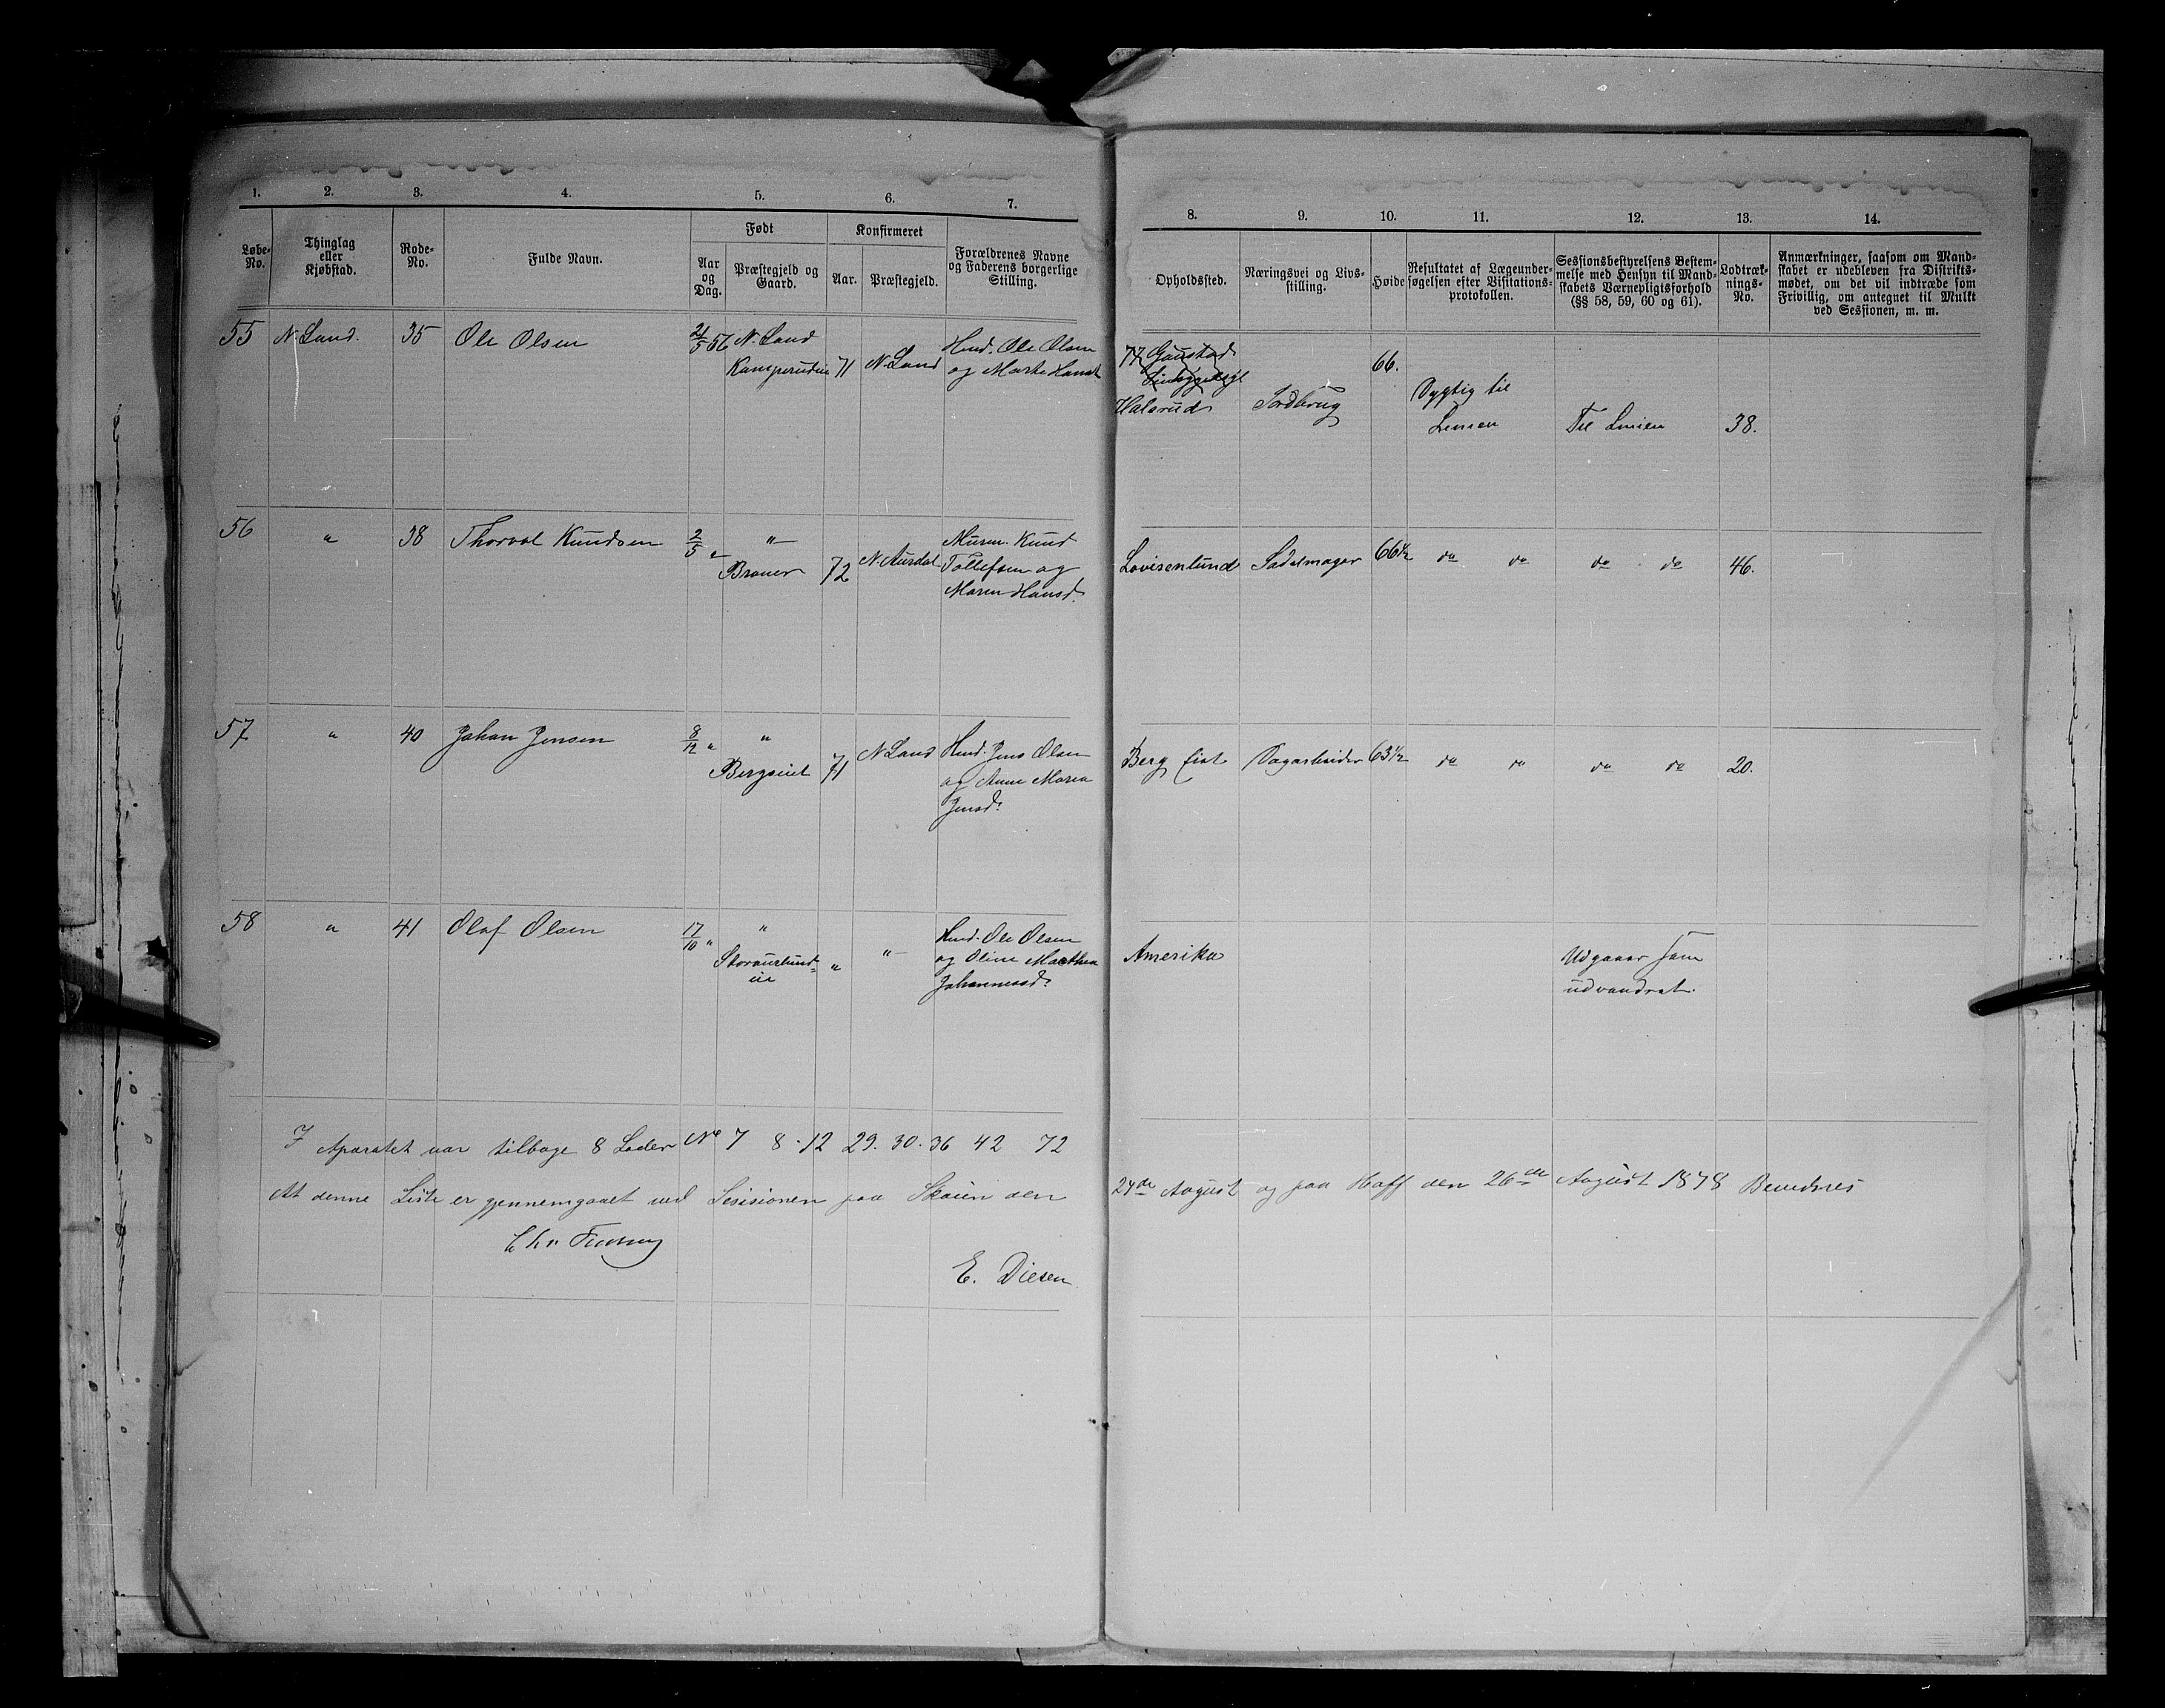 1. 2. 3. 4. 5. 6. 7.
Løbe-No. Thinglag eller Kjøbstad. Rode-No. Fulde Navn. Født Konfirmeret Forældrenes Navne og Faderens borgerlige Stilling.
Aar og Dag. Præstegjeld og Gaard. Aar. Præstegjeld.
55 N. Land. 35 Ole Olsen 21/5 56 N. Land 71 N. Land Husd. Ole Olsen
og Marte Hansd.
56 " 38 Thorval Knudsen 2/5 " " 72 N. Aurdal Murm. Knud
Braner Tollefsen og
Maren Hansd.
57 " 40 Johan Jensen 8/12 " " 71 N. Land Husd. Jens Olsen
Bergseiet og Anne Maria
Jensd.
58 " 41 Olaf Olsen 17/10 " " " " Husd. Ole Olsen
og Oline Marthea
Johannesd.
I Aparatet var tilbage 8 Lodder No 7 8. 12 29. 30. 36 42 72
At denne Liste er gjennemgaaet ved Sessionen paa Skøien den
E. Diesen
8. 9. 10. 11. 12. 13. 14.
Opholdssted. Næringsvei og Livsstilling. Høide Resultatet af Lægeundersøgelsen efter Visitationsprotokollen. Sessionsbestyrelsens Bestemmelse med Hensyn til Mandskabets Værnepligtsforhold (§§ 58, 59, 60 og 61). Lodtræknings-No. Anmærkninger, saasom om Mandskabet er udebleven fra Distriktsmødet, om det vil indtræde som Frivillig, om antegnet til Mulkt ved Sessionen, m. m.
77 Gaustad 66.
Halsrud Jordbrug Dygtig til
Linien Til Linien 38.
Lovisenlund Sadelmager 66½ do do do do 46.
Berg Eiet Dagarbeider 63½ do do do do 20.
Amerika Udgaaer som
udvandret.
24de August og paa Hoff den 26de August 1878 Bevidnes